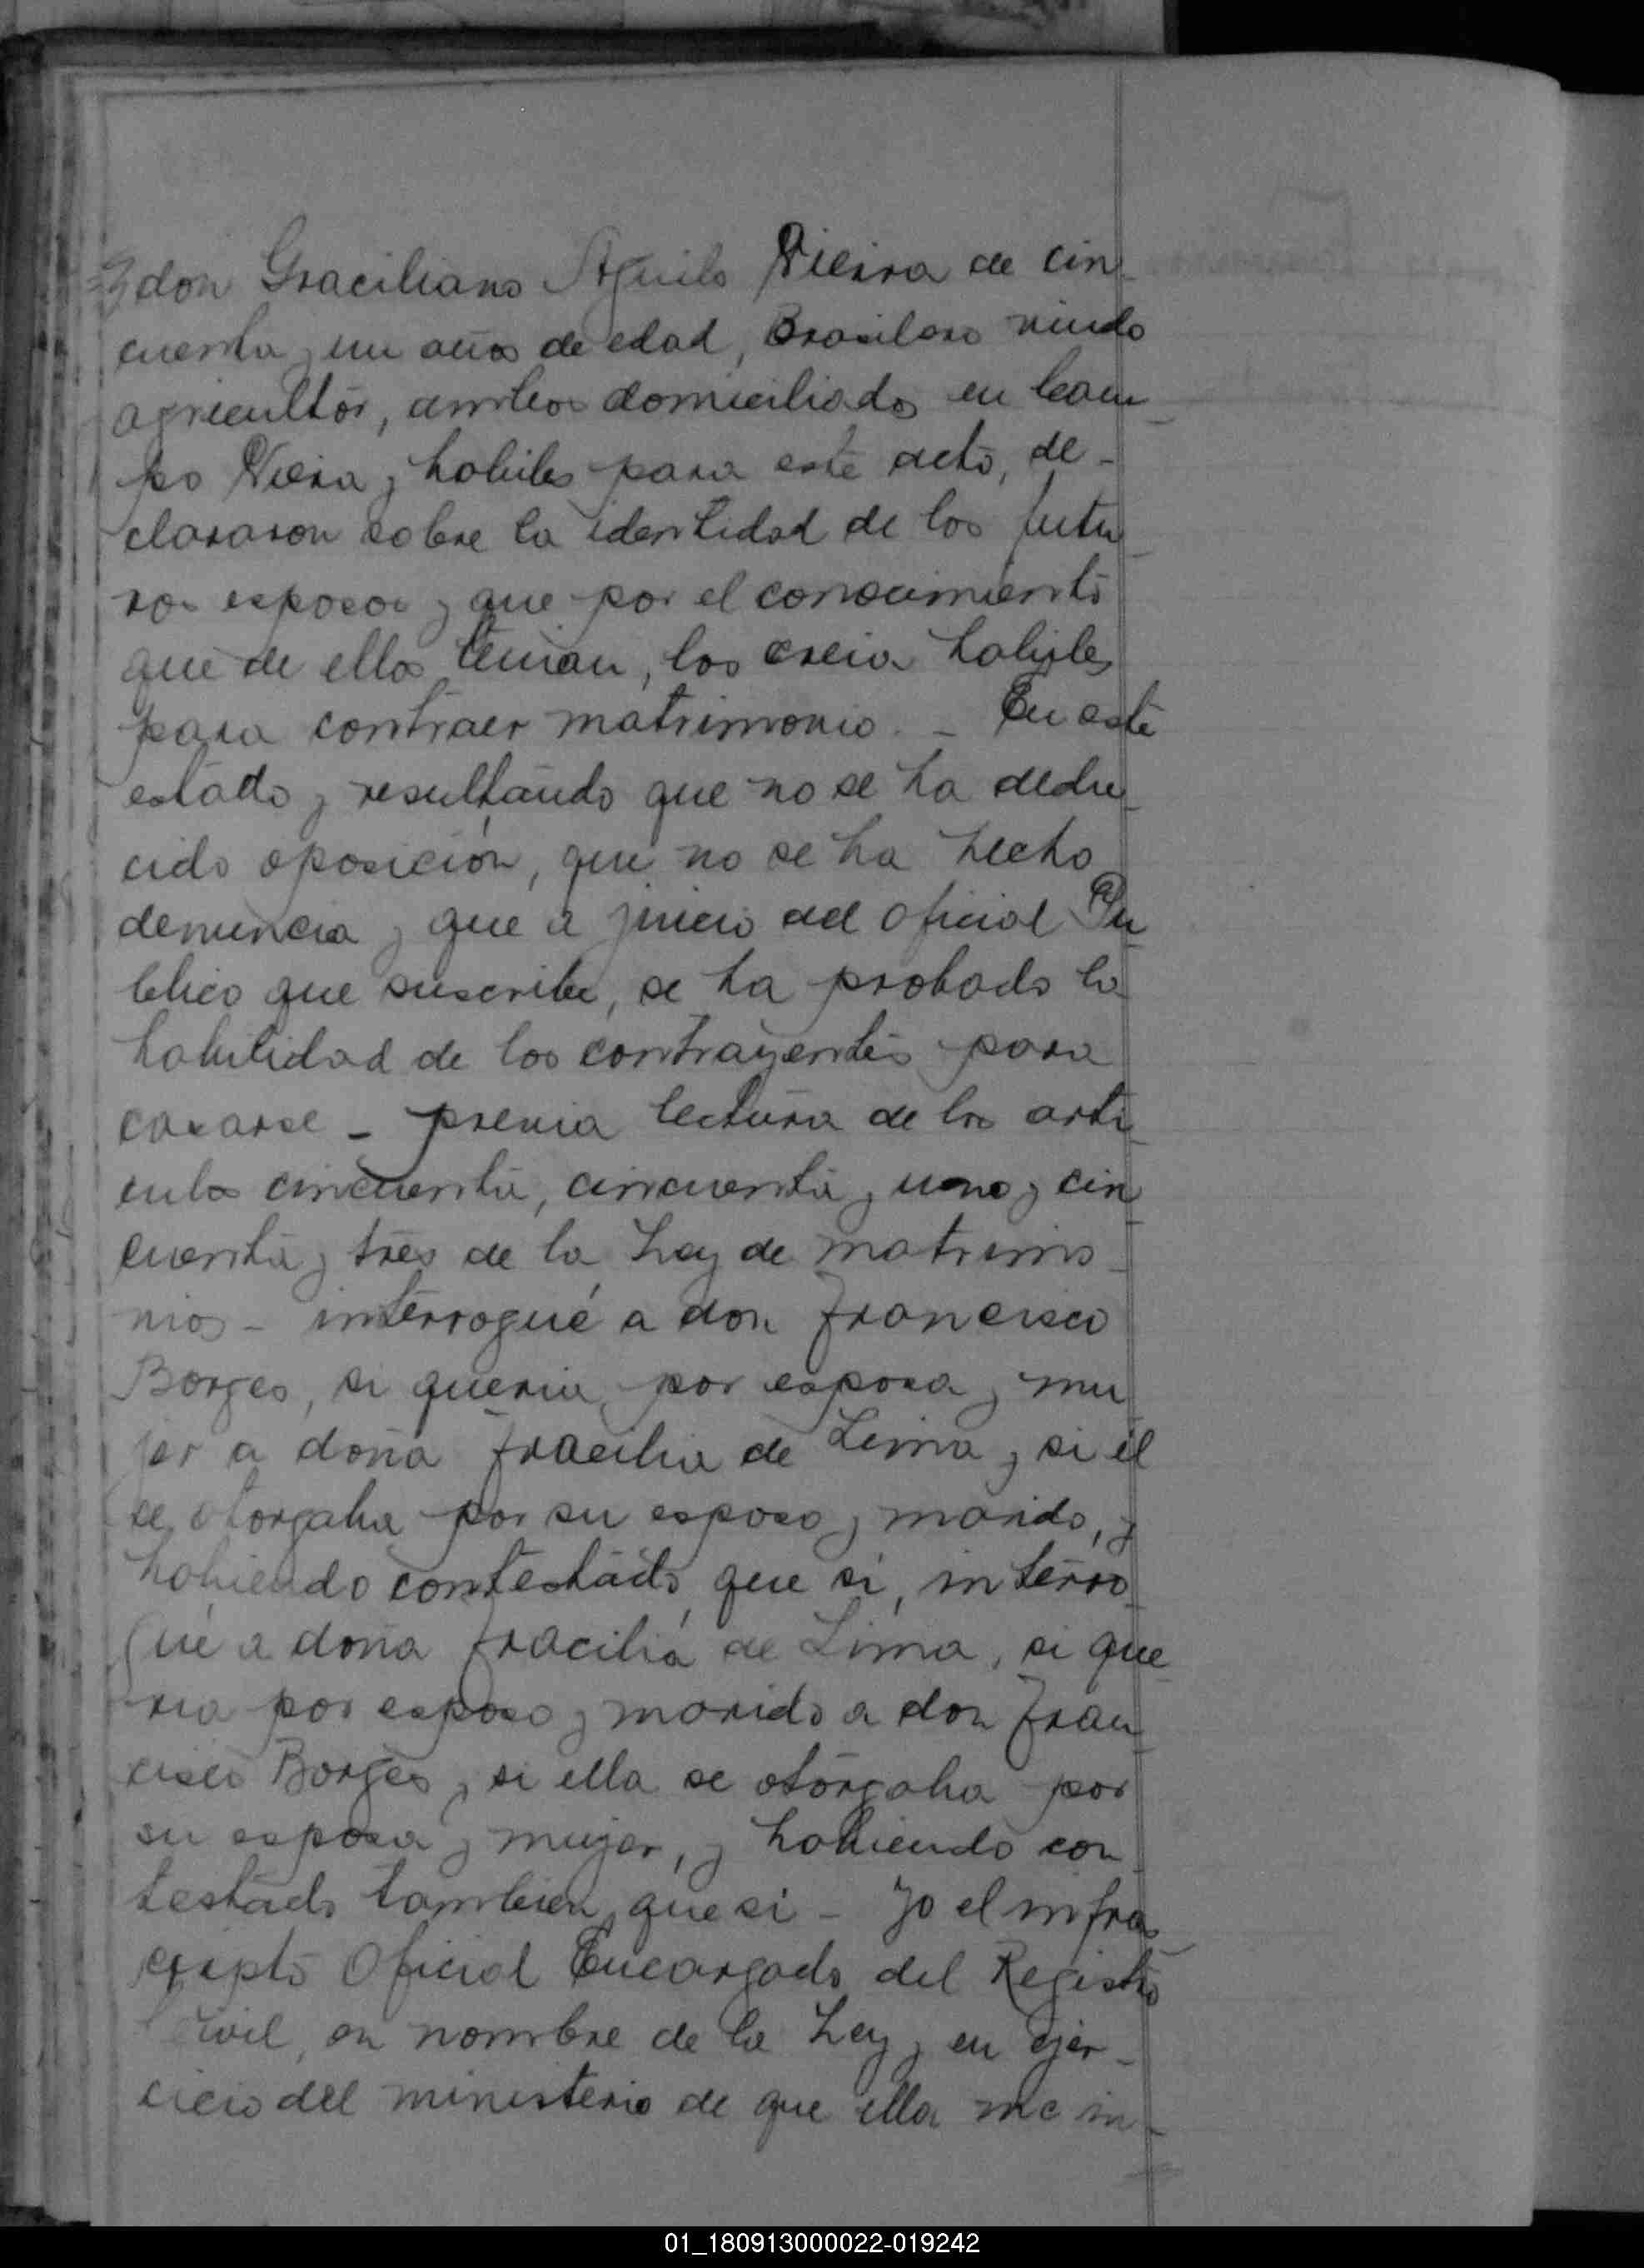 y don Graciliano Aguilo Vieira de cin_
cuenta y un años de edad, Brasilero viudo
agricultor, ambos domiciliados en Cam_
po Viera y habiles para este acto, de_
clararon sobre la identidad de los futu_
ros esposos y que por el conocimiento
que de ellos tenian, los creia habiles
para contraer matrimonio. _ En este
estado y resultando que no se ha dedu_
cido oposición, que no se ha hecho
denuncia y que a juicio del oficial Pu_
blico que suscribe, se ha probado la
habilidad de los contrayentes para
casarse _ previa lectura de los arti_
culos cincuenta, cincuenta y uno y cin_
cuenta y tres de la Ley de matrimo_
nios _ interrogué a don Francisco
Borges, si queria por esposa y mu
jer a doña Fracilia de Lima y si él
se otorgaba por su esposo y marido, y
habiendo contestado que si, interro_
gué a doña Fracilia de Lima, si que_
ria por esposo y marido a don Fran_
cisco Borges y si ella se otorgaba por
su esposa y mujer, y habiendo con_
testado tambien que si _ Yo el infras
cripto Oficial Encargado del Registro
Civil, en nombre de la Ley y en ejer_
cicio del ministerio de que ella me in_
01_180913000022-019242